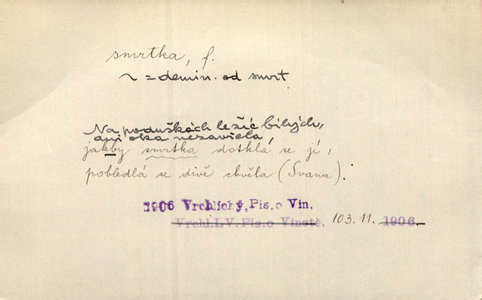 smrtka, f.
~ = demin. od smrt
Na poduškách ležíc bílých,
ani oka nezavřela,
jakby smrtka dotkla se jí,
pobledlá se divě chvěla (Svana).
1906 Vrchlický, Pís. o Vin.
Vrchl. J. V. Pís. o Vinetě. 103. 11. 1906.